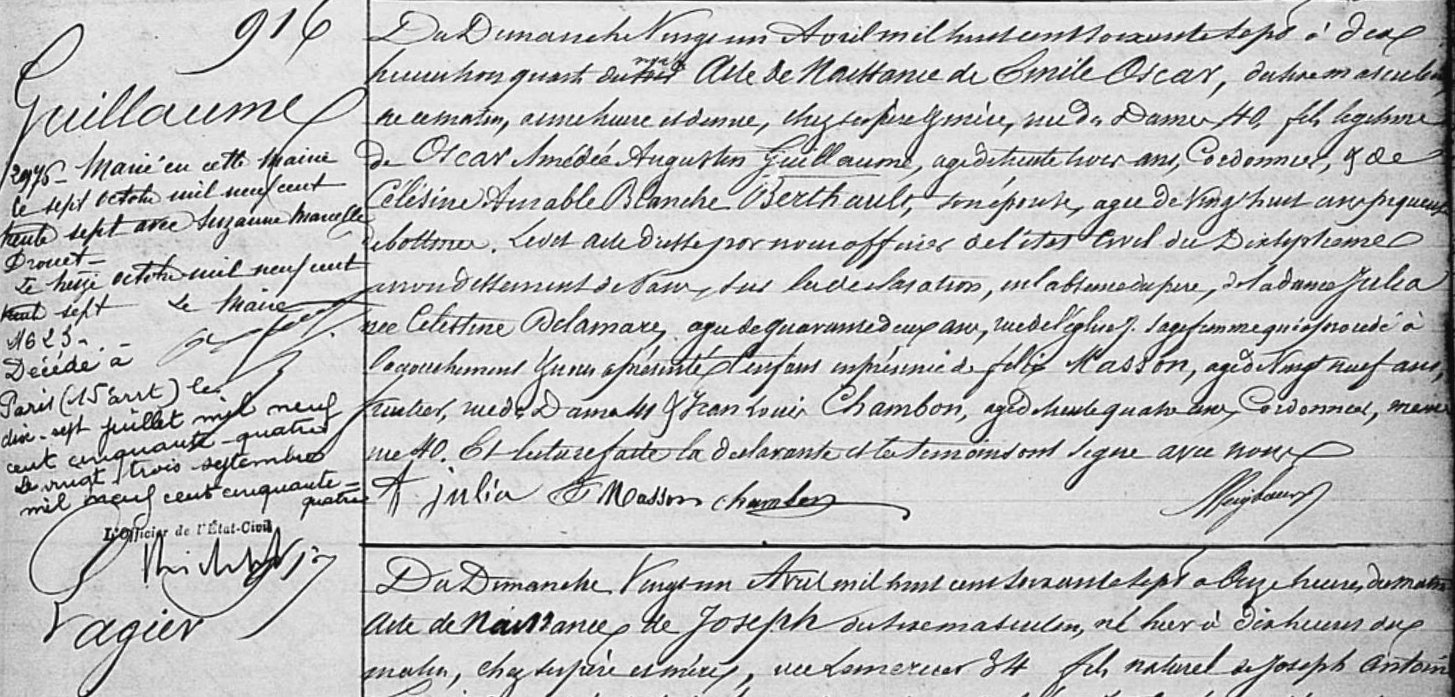 916
Guillaume
2976 - Marié en cette Mairie
le sept octobre mil neuf cent
trente sept avec Suzanne Marcelle
Drouet -
Le treize octobre mil neuf cent
trente sept Le Maire
N625 -
Décédé à
Paris (15 arrt) le
dix-sept juillet mil neuf
cent cinquante-quatre
Le vingt trois septembre
mil neuf cent cinquante-
quatre
L'Officier de l'État-Civil
Du Dimanche Vingt un Avril mil huit cent soixante sept à dix
heures un quart du matin Acte de Naissance de Emile Oscar, du sexe masculin
né ce matin, à une heure et demie, chez ses père & mère, rue des Dames 40, fils légitime
de Oscar Amédée Augustin Guillaume, agé de trente trois ans, Cordonnier, & de
Célésine Aimable Blanche Berthault, son épouse, agée de Vingt huit ans piqueuse
de bottines. Le dit acte dressé par nous officier de l'état Civil du Dixseptième
arrondissement de Paris, sur la déclaration, en l'absence du père, de la dame Julia
née Celestine Delamare, agée de quarante deux ans, rue de l'église 7. sagefemme qui a procédé à
l'accouchement & nous a présenté l'enfant en présence de félix Masson, agé de Vingt neuf ans,
fruitier, rue des Dames 41 & Jean Louis Chambon, agé de trente quatre ans, Cordonnier, même
rue 40. Et lecture faite la déclarante et les témoins ont signé avec nous
A julia F Masson chambon
Lagier
Du Dimanche Vingt un Avril mil huit cent soixante sept à Onze heures du matin
Acte de Naissance de Joseph du sexe masculin, né hier à dix heures du
matin, chez ses père et mère, rue Lemercier 34 fils naturel de Joseph Antoin